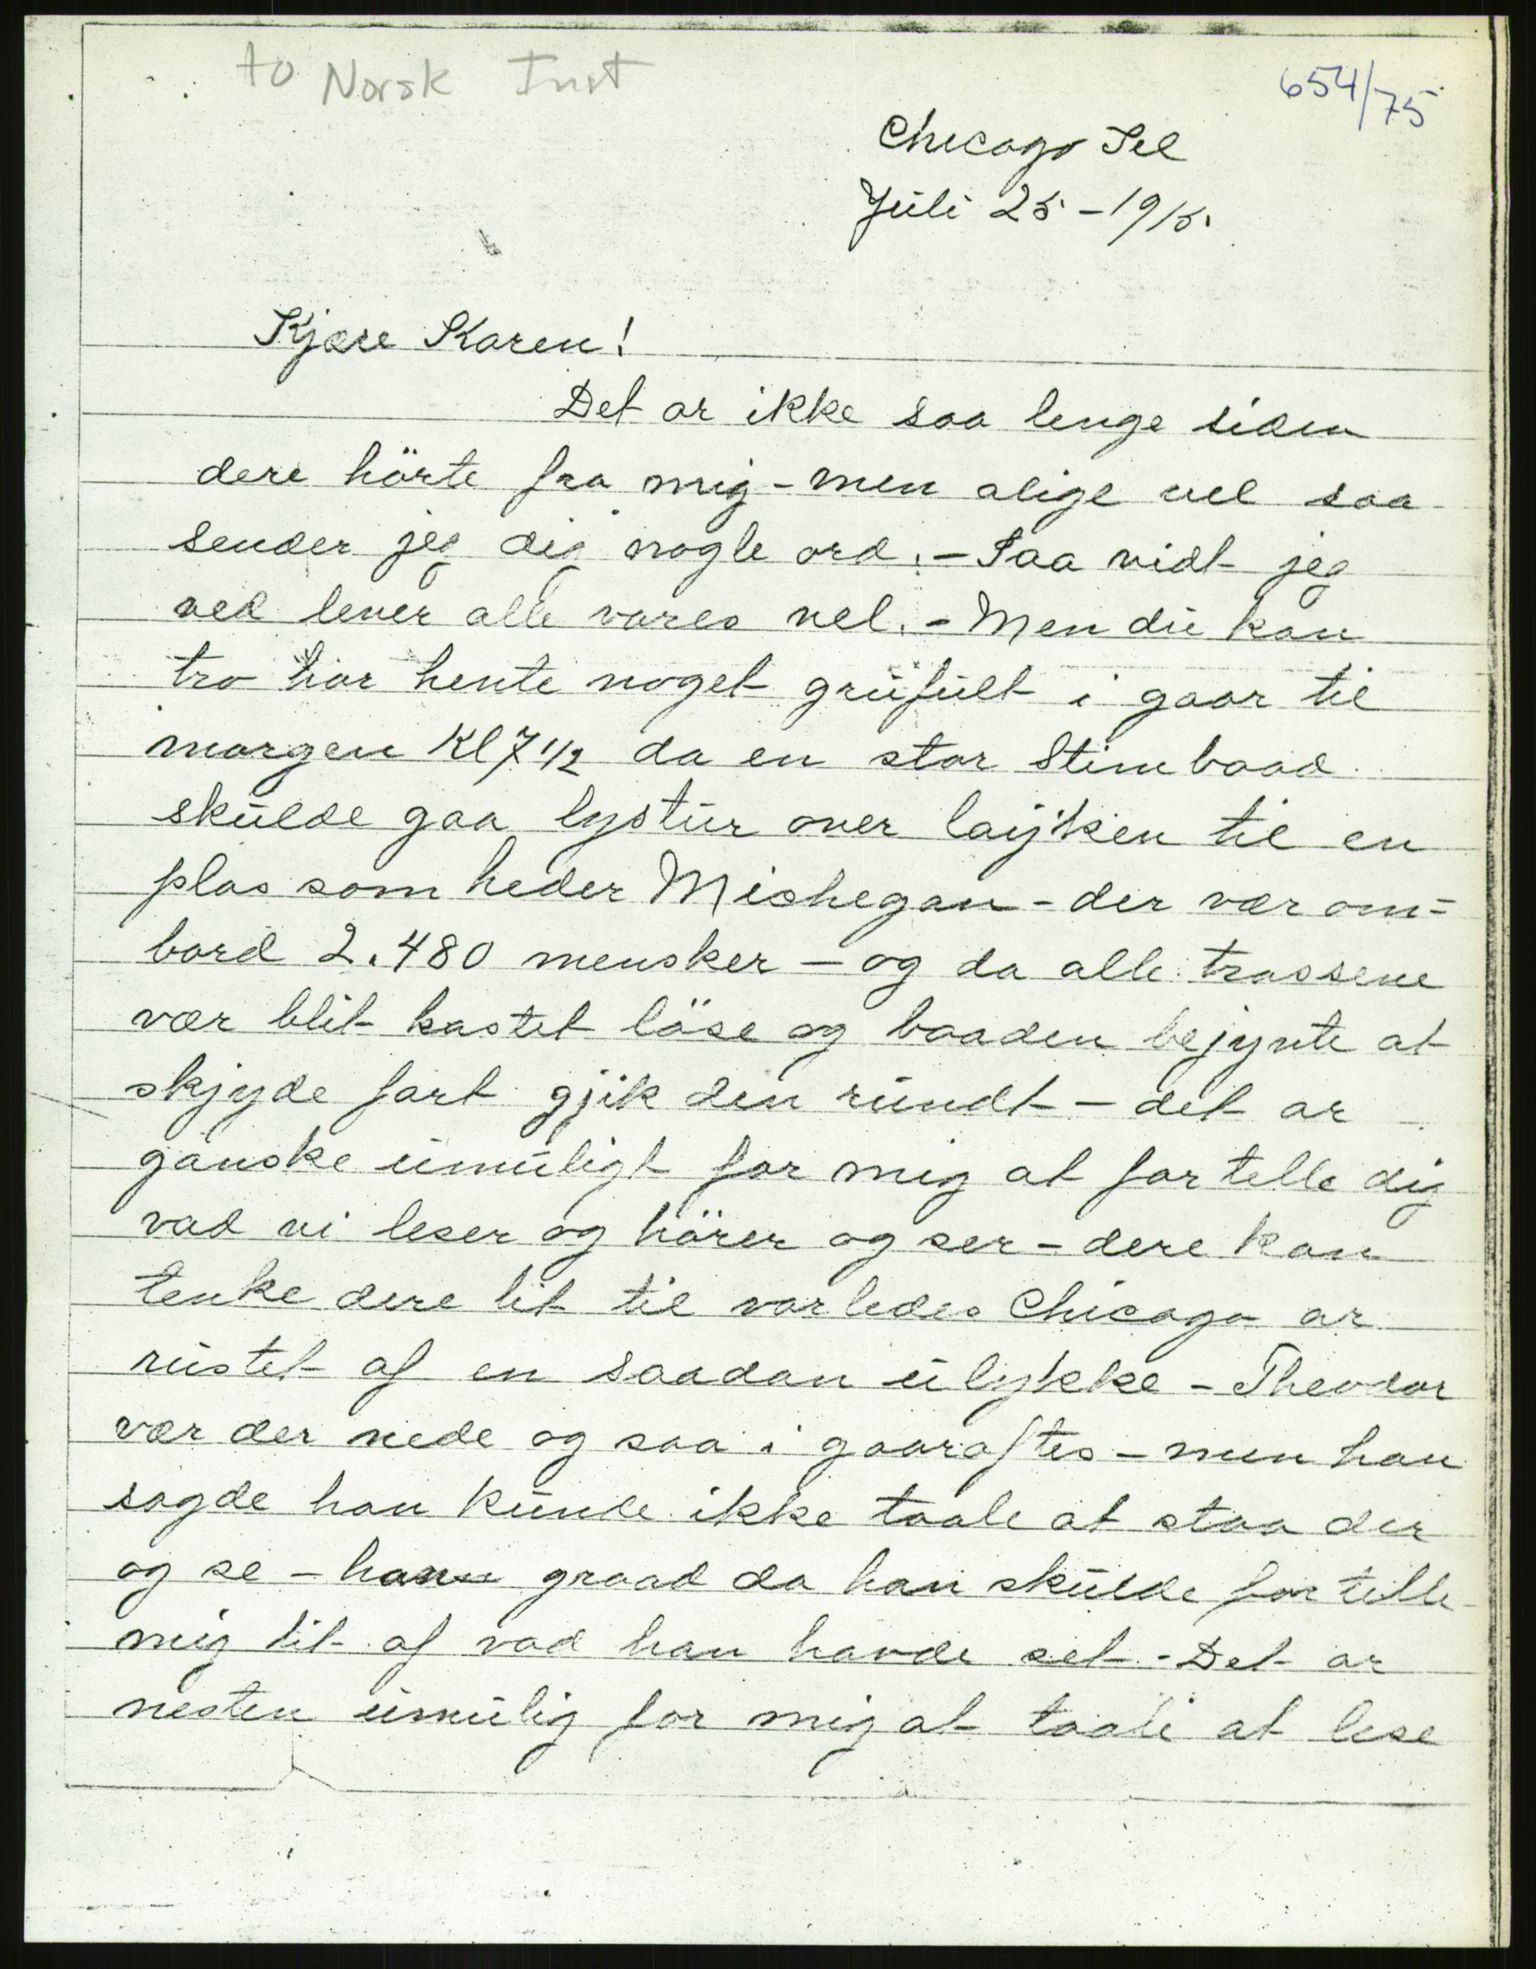 to Norsk Inst
654/75
Chicago Ill
Juli 25 - 1915.
Kjære Karen!
Det ar ikke saa lenge siden
dere hörte fra mig - men alige vel saa
sender jeg dig nogle ord. - Saa vidt jeg
ved lever alle vares vel. - Men du kan
tro har hente noget grufult i gaar til
morgen Kl 7 1/2 da en stor Stimbaad
skulde gaa lystur over laijken til en
plas som heder Mishegan - der vær om=
bord 2.480 mensker - og da alle trossene
vær blit kastet löse og baaden bejynte at
skjyde fart gjik den rundt - det ar
ganske umuligt for mig at fortelle dig
vad vi leser og hörer og ser - dere kan
tenke dere lit til vorledes Chicago ar
rustet af en saadan ulykke - Theodor
vær der nede og saa i gaaraftes - men han
sagde han kunde ikke taale at staa der
og se - han graad da han skulde fortelle
mig lit af vad han havde set - Det ar
nesten umulig for mig at taale at lese